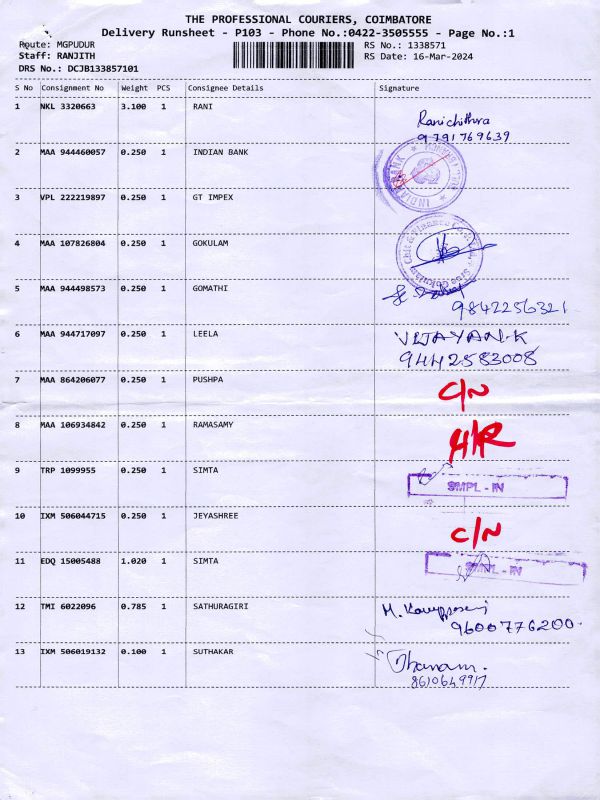 THE PROFESSIONAL COURIERS, COIMBATORE
Delivery Runsheet - P103 - Phone No.:0422-3505555 - Page No.:1
Route: MGPUDUR RS No.: 1338571
Staff: RANJITH RS Date: 16-Mar-2024
DRS No.: DCJB133857101
S No Consignment No Weight PCS Consignee Details Signature
1 NKL 3320663 3.100 1 RANI Ranichithra
9791769639
2 MAA 944460057 0.250 1 INDIAN BANK INDIAN BANK
3 VPL 222219897 0.250 1 GT IMPEX
4 MAA 107826804 0.250 1 GOKULAM
5 MAA 944498573 0.250 1 GOMATHI
9842256321
6 MAA 944717097 0.250 1 LEELA VIJAYAN.K
9442583008
7 MAA 864206077 0.250 1 PUSHPA C/N
8 MAA 106934842 0.250 1 RAMASAMY
9 TRP 1099955 0.250 1 SIMTA SMPL-IN
10 IXM 506044715 0.250 1 JEYASHREE C/N
11 EDQ 15005488 1.020 1 SIMTA SMPL-IN
12 TMI 6022096 0.785 1 SATHURAGIRI
9600776200
13 IXM 506019132 0.100 1 SUTHAKAR
8610649917